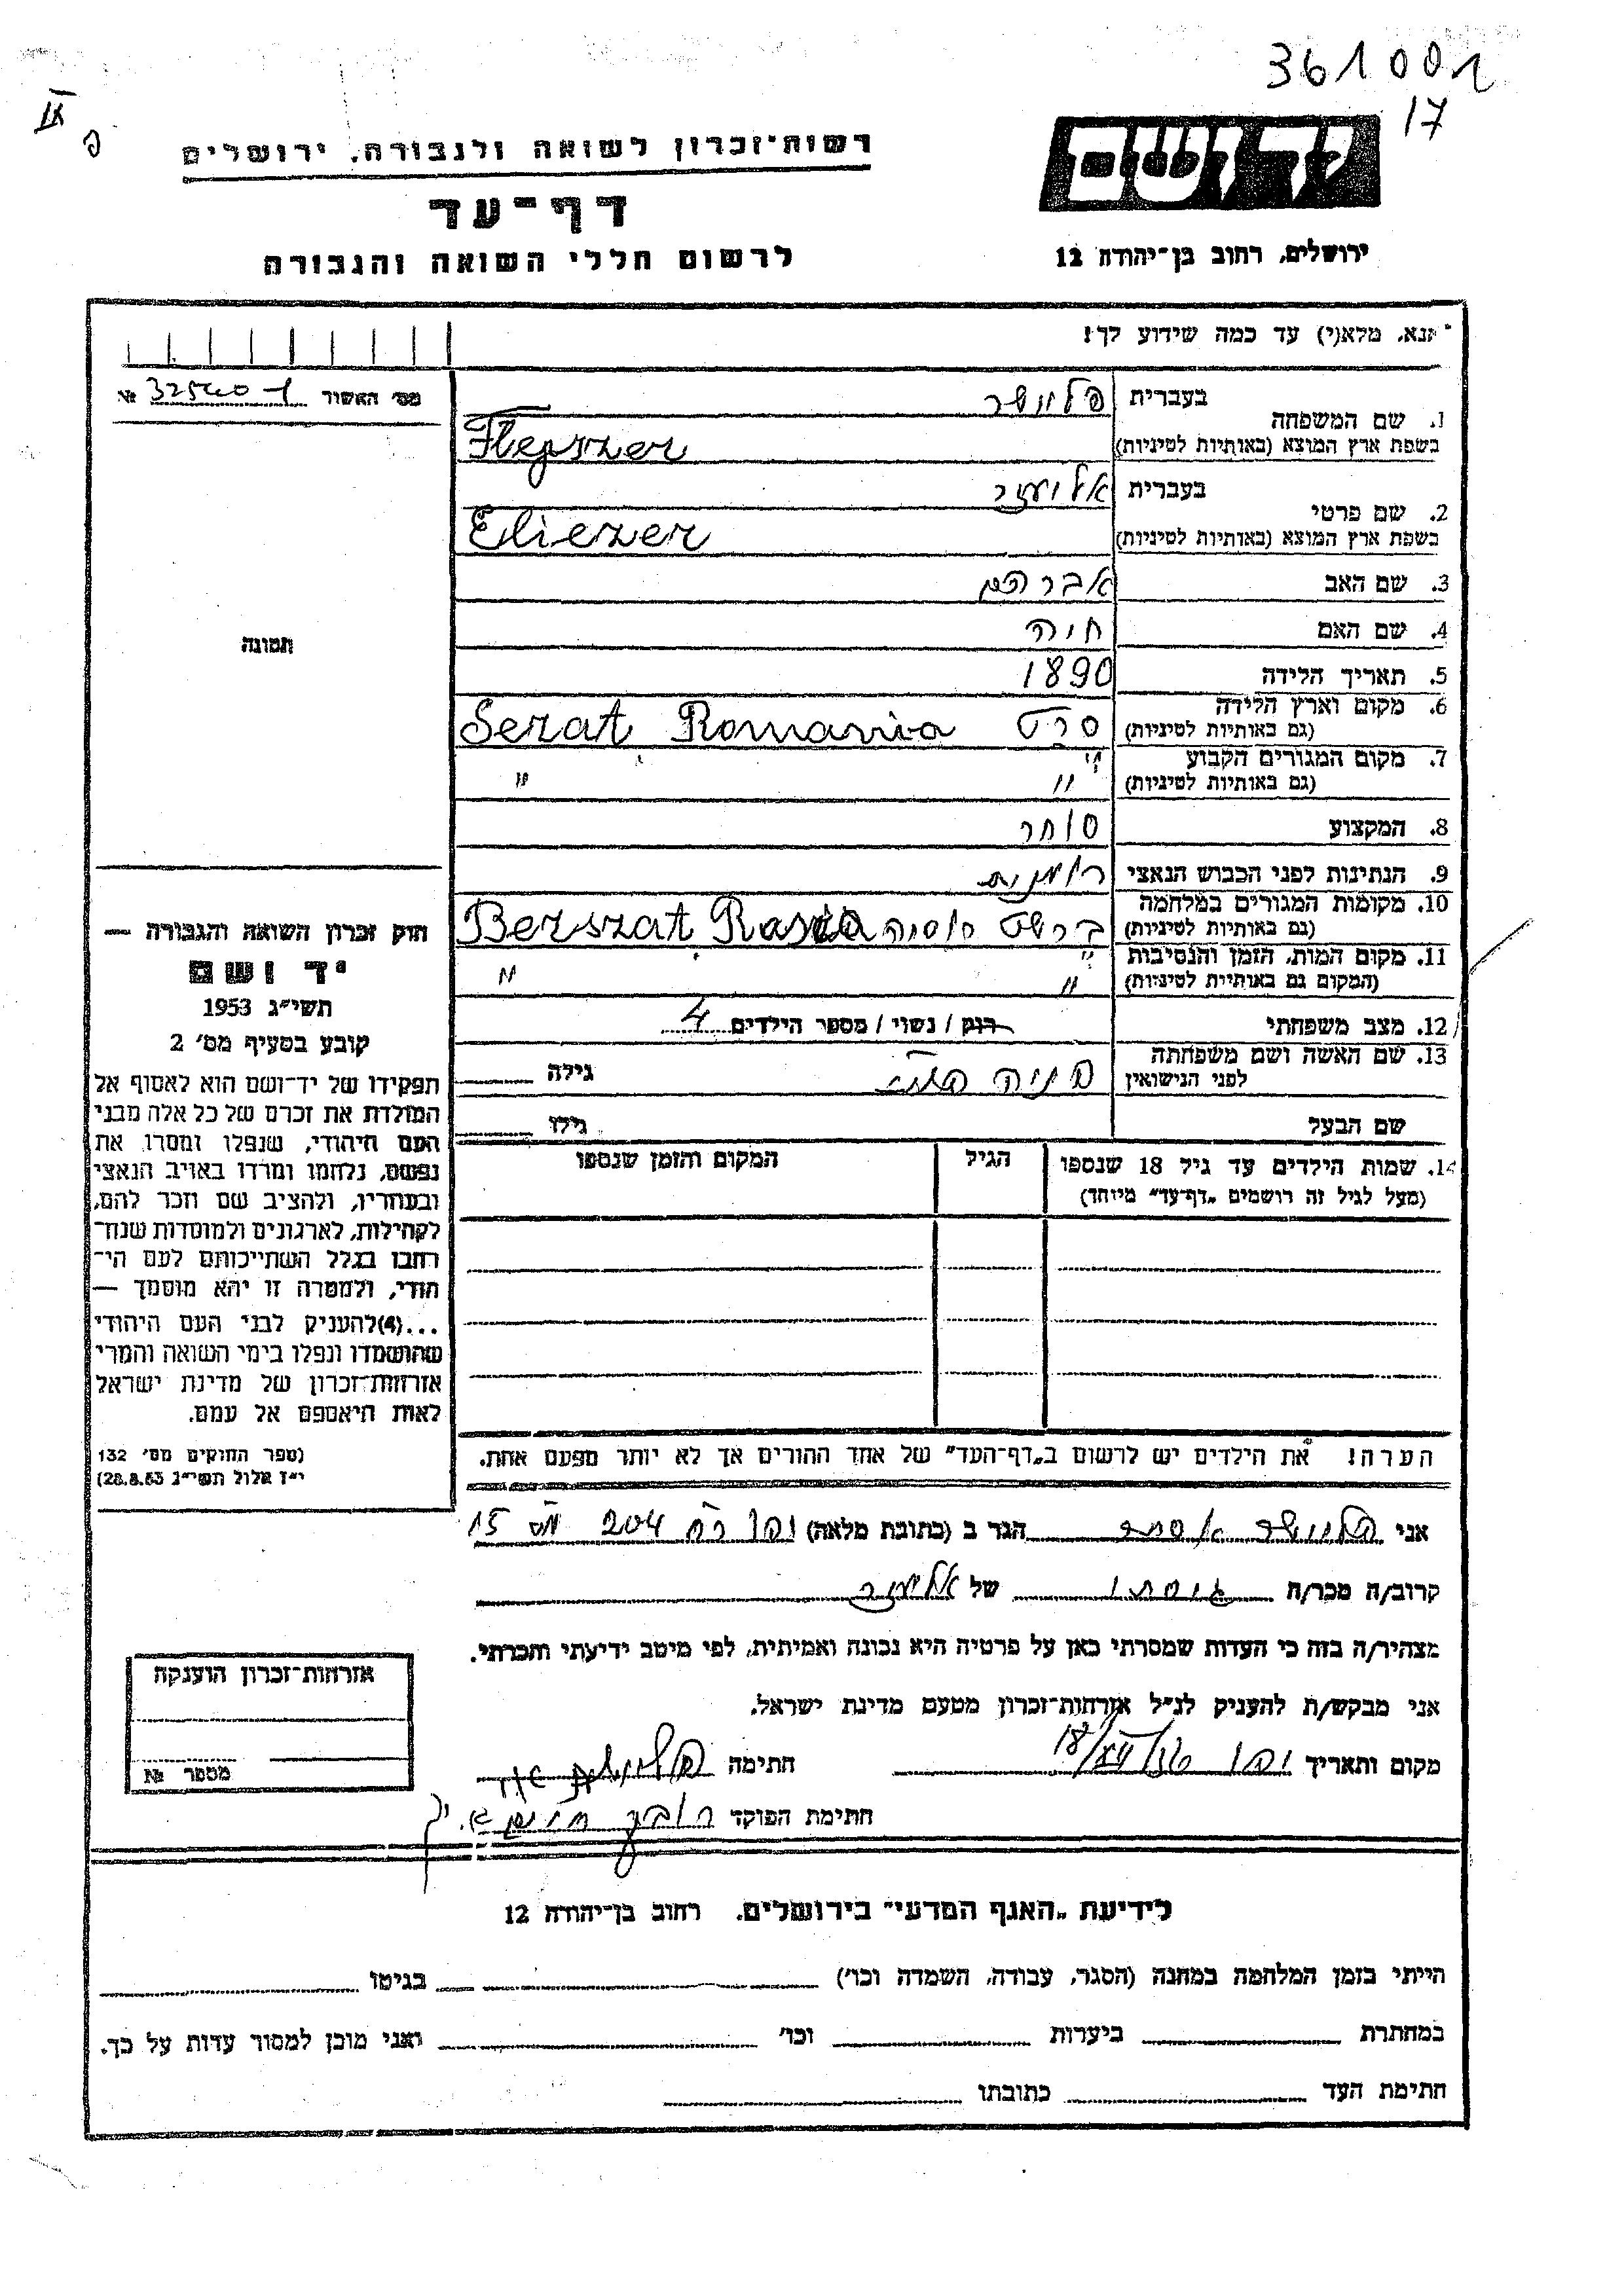 361001
17
IX
פ
יד ושם
ירושלים, רחוב בן־יהודה 12
רשות־זכרון לשואה ולגבורה, ירושלים
דף־עד
לרשום חללי השואה והגבורה
אנא, מלא(י) עד כמה שידוע לך!
מס׳ האשור
№
1. שם המשפחה
בעברית
פלוישר
בשפת ארץ המוצא (באותיות לטיניות)
Flejszer
2. שם פרטי
בעברית
אליעזר
בשפת ארץ המוצא (באותיות לטיניות)
Eliezer
3. שם האב אברהם
4. שם האם חיה
5. תאריך הלידה 1890
6. מקום וארץ הלידה
(גם באותיות לטיניות)
סרט Serat Romania
7. מקום המגורים הקבוע
(גם באותיות לטיניות)
" "
8. המקצוע סוחר
9. הנתינות לפני הכבוש הנאצי
10. מקומות המגורים במלחמה
(גם באותיות לטיניות)
ברשט רוסיה Berszat
11. מקום המות, הזמן והנסיבות
(המקום גם באותיות לטיניות)
" "
12. מצב משפחתי רווק / נשוי / מספר הילדים 4
13. שם האשה ושם משפחתה
לפני הנישואין
גילה
שם הבעל גילו
14. שמות הילדים עד גיל 18 שנספו
(מעל לגיל זה רושמים „דף־עד" מיוחד)
הגיל
המקום והזמן שנספו
הערה! את הילדים יש לרשום ב„דף־העד" של אחד ההורים אך לא יותר מפעם אחת.
תמונה
חוק זכרון השואה והגבורה —
יד ושם
תשי״ג 1953
קובע בסעיף מס׳ 2
תפקידו של יד־ושם הוא לאסוף אל
המולדת את זכרם של כל אלה מבני
העם היהודי, שנפלו ומסרו את
נפשם, נלחמו ומרדו באויב הנאצי
ובעוזריו, ולהציב שם וזכר להם,
לקהילות, לארגונים ולמוסדות שנח־
רבו בגלל השתייכותם לעם הי־
הודי, ולמטרה זו יהא מוסמך —
...(4) להעניק לבני העם היהודי
שהושמדו ונפלו בימי השואה והמרי
אזרחות־זכרון של מדינת ישראל
לאות היאספם אל עמם.
(ספר החוקים מס׳ 132
י״ז אלול תשי״ג 28.8.53)
אני פלוישר אסתר הגר ב (כתובת מלאה) 204 15
קרוב/ה מכר/ה גיסתו של אליעזר
מצהיר/ה בזה כי העדות שמסרתי כאן על פרטיה היא נכונה ואמיתית, לפי מיטב ידיעתי והכרתי.
אני מבקש/ת להעניק לנ״ל אזרחות־זכרון מטעם מדינת ישראל.
מקום ותאריך
חתימה
חתימת הפוקד
אזרחות־זכרון הוענקה
מספר №
לידיעת „האגף המדעי" בירושלים, רחוב בן־יהודה 12
הייתי בזמן המלחמה במחנה (הסגר, עבודה, השמדה וכו׳) בגיטו
במחתרת ביערות וכו׳ ואני מוכן למסור עדות על כך.
חתימת העד כתובתו